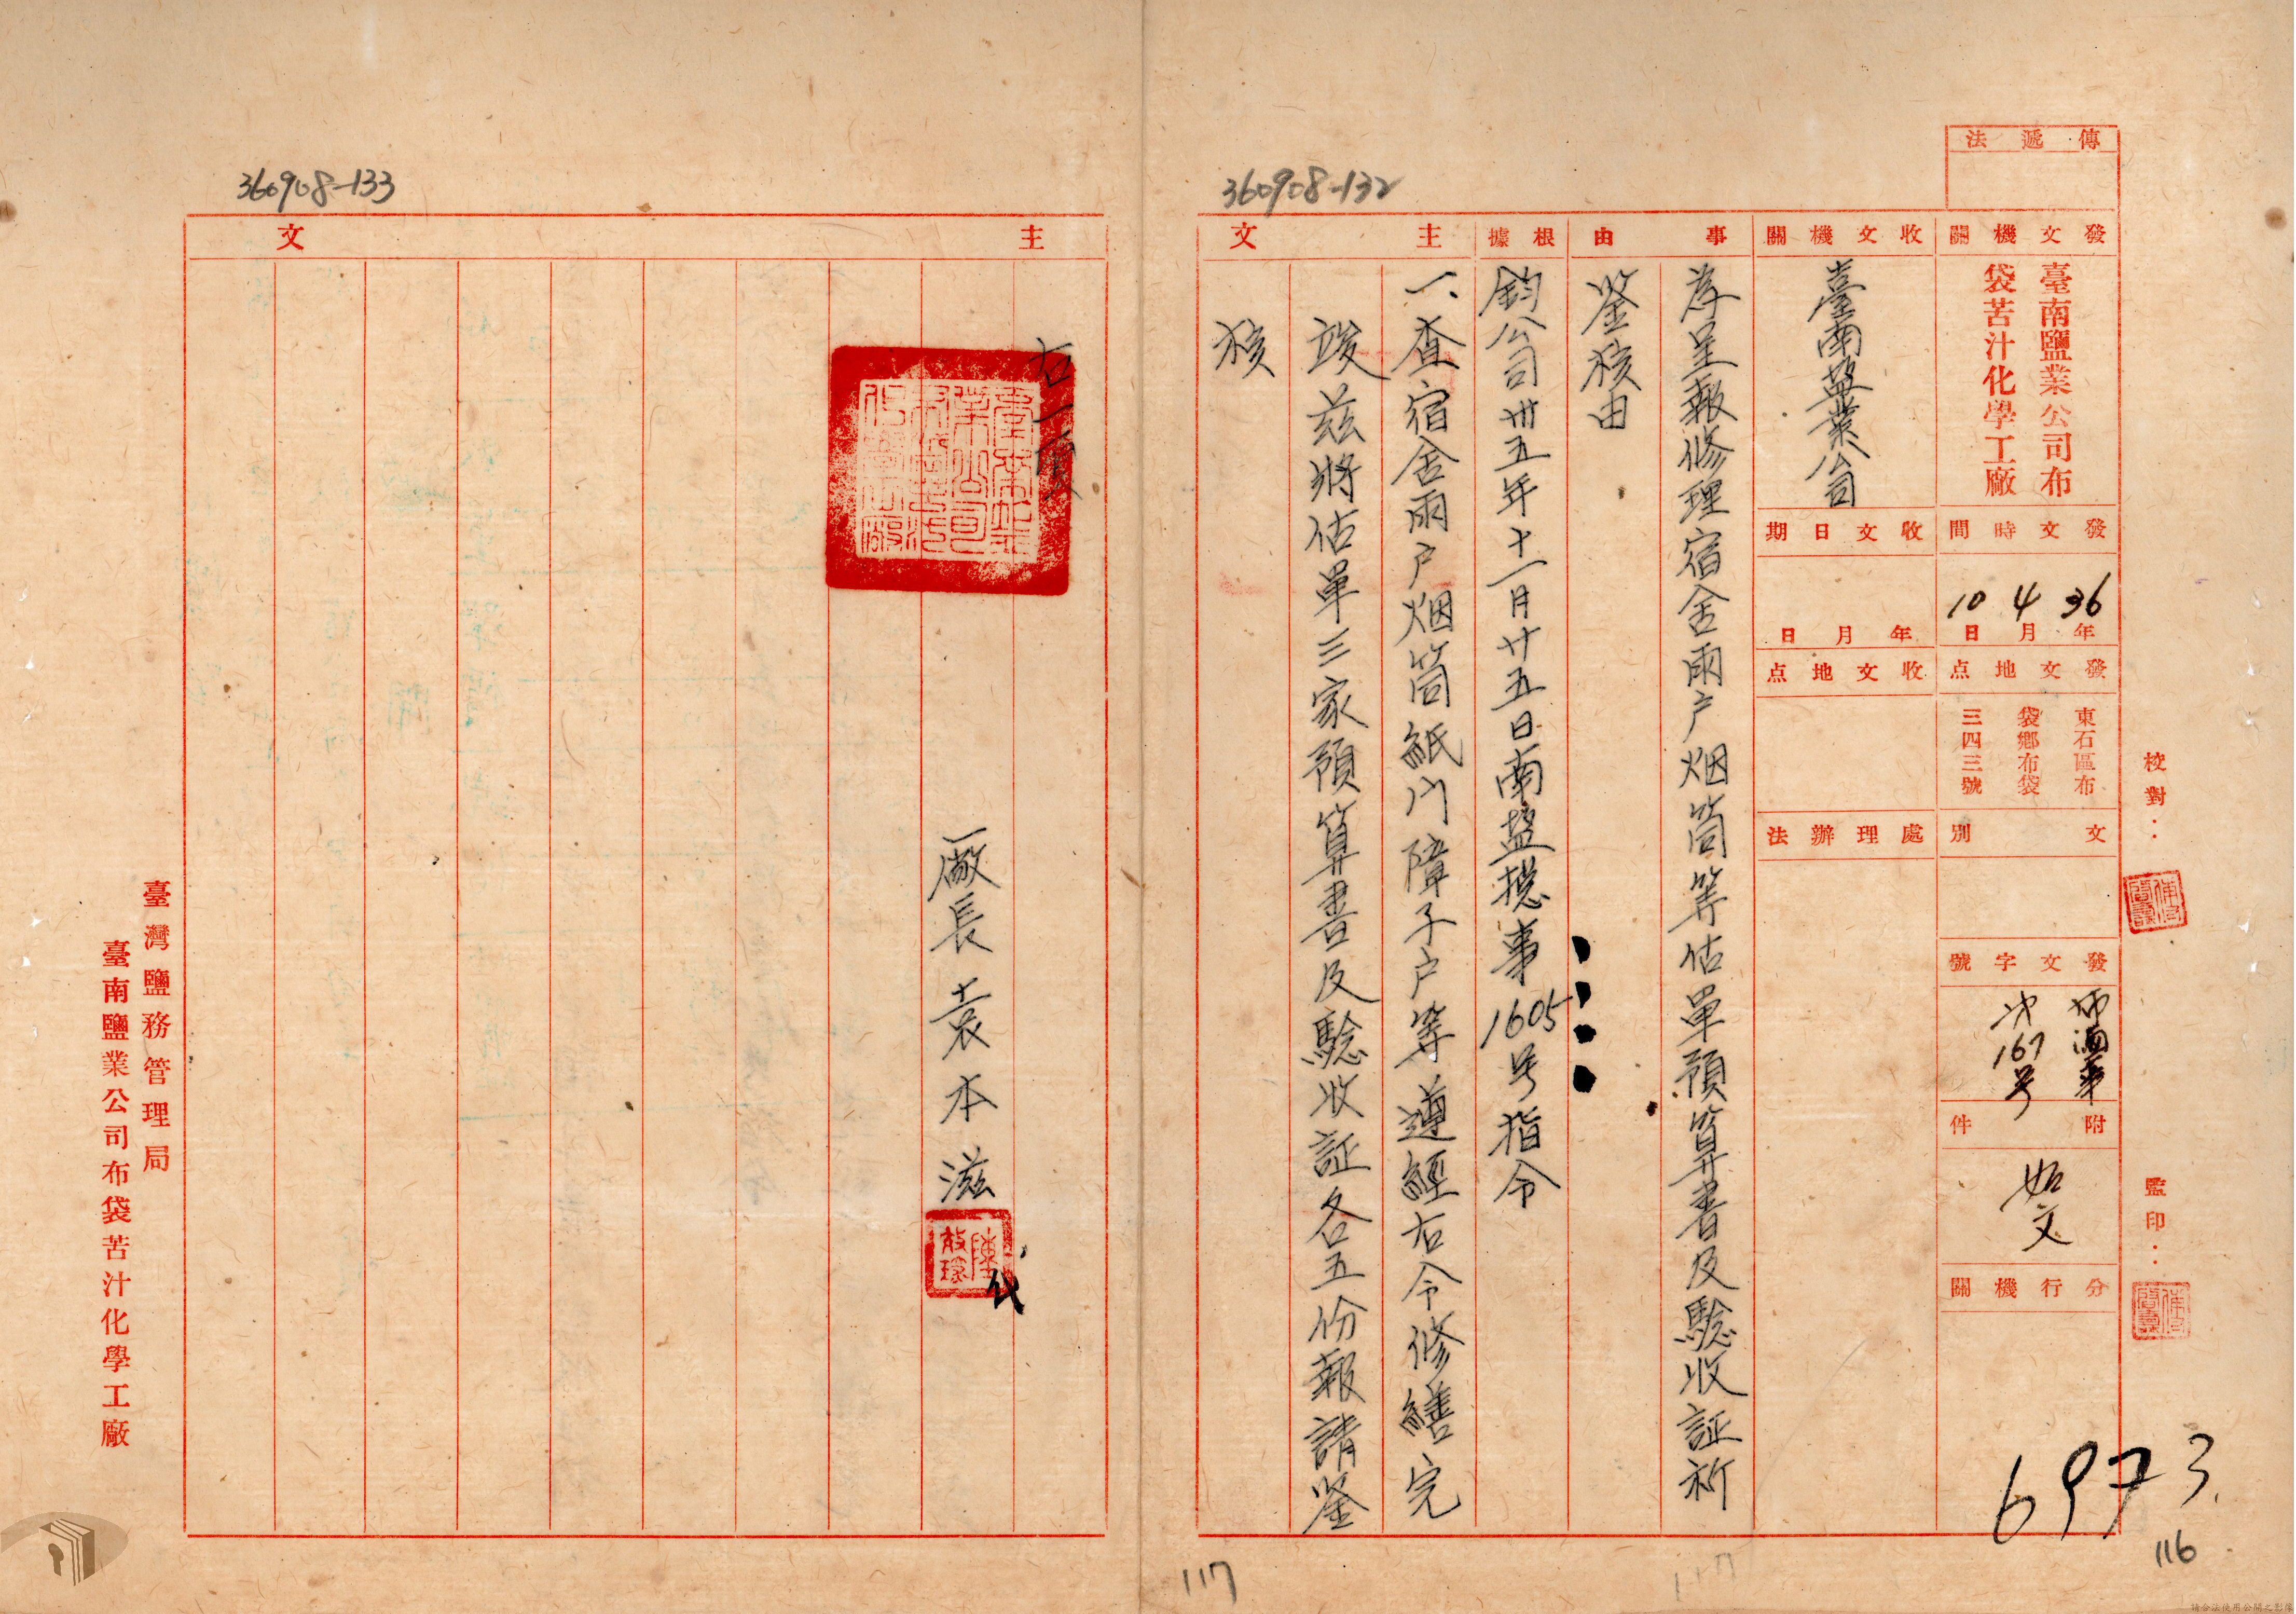 傳遞法
發文機關
臺南鹽業公司布
袋苦汁化學工廠
發文時間
36年4月10日
發文地点
東石區布
袋鄉布袋
三四三號
文別
發文字號
布滷事
167号
附件
如文
分行機關
收文機關
臺南盐業公司
收文日期
年月日
收文地点
處理辦法
事由
為呈報修理宿舍雨户烟筒等估單預算書及驗收証祈
鉴核由
根據
鈞公司卅五年十一月廿五日南盐總事1605号指令
主文
一、查宿舍雨户烟筒紙門障子户等遵經右令修繕完
竣兹將估單三家預算書及驗收証各五份報請鉴
核
校對：
監印：
360908-132
6973
116
117
360908-133
主文
廠長袁本滋
代
臺灣鹽務管理局
臺南鹽業公司布袋苦汁化學工廠
請合法使用公開之影像